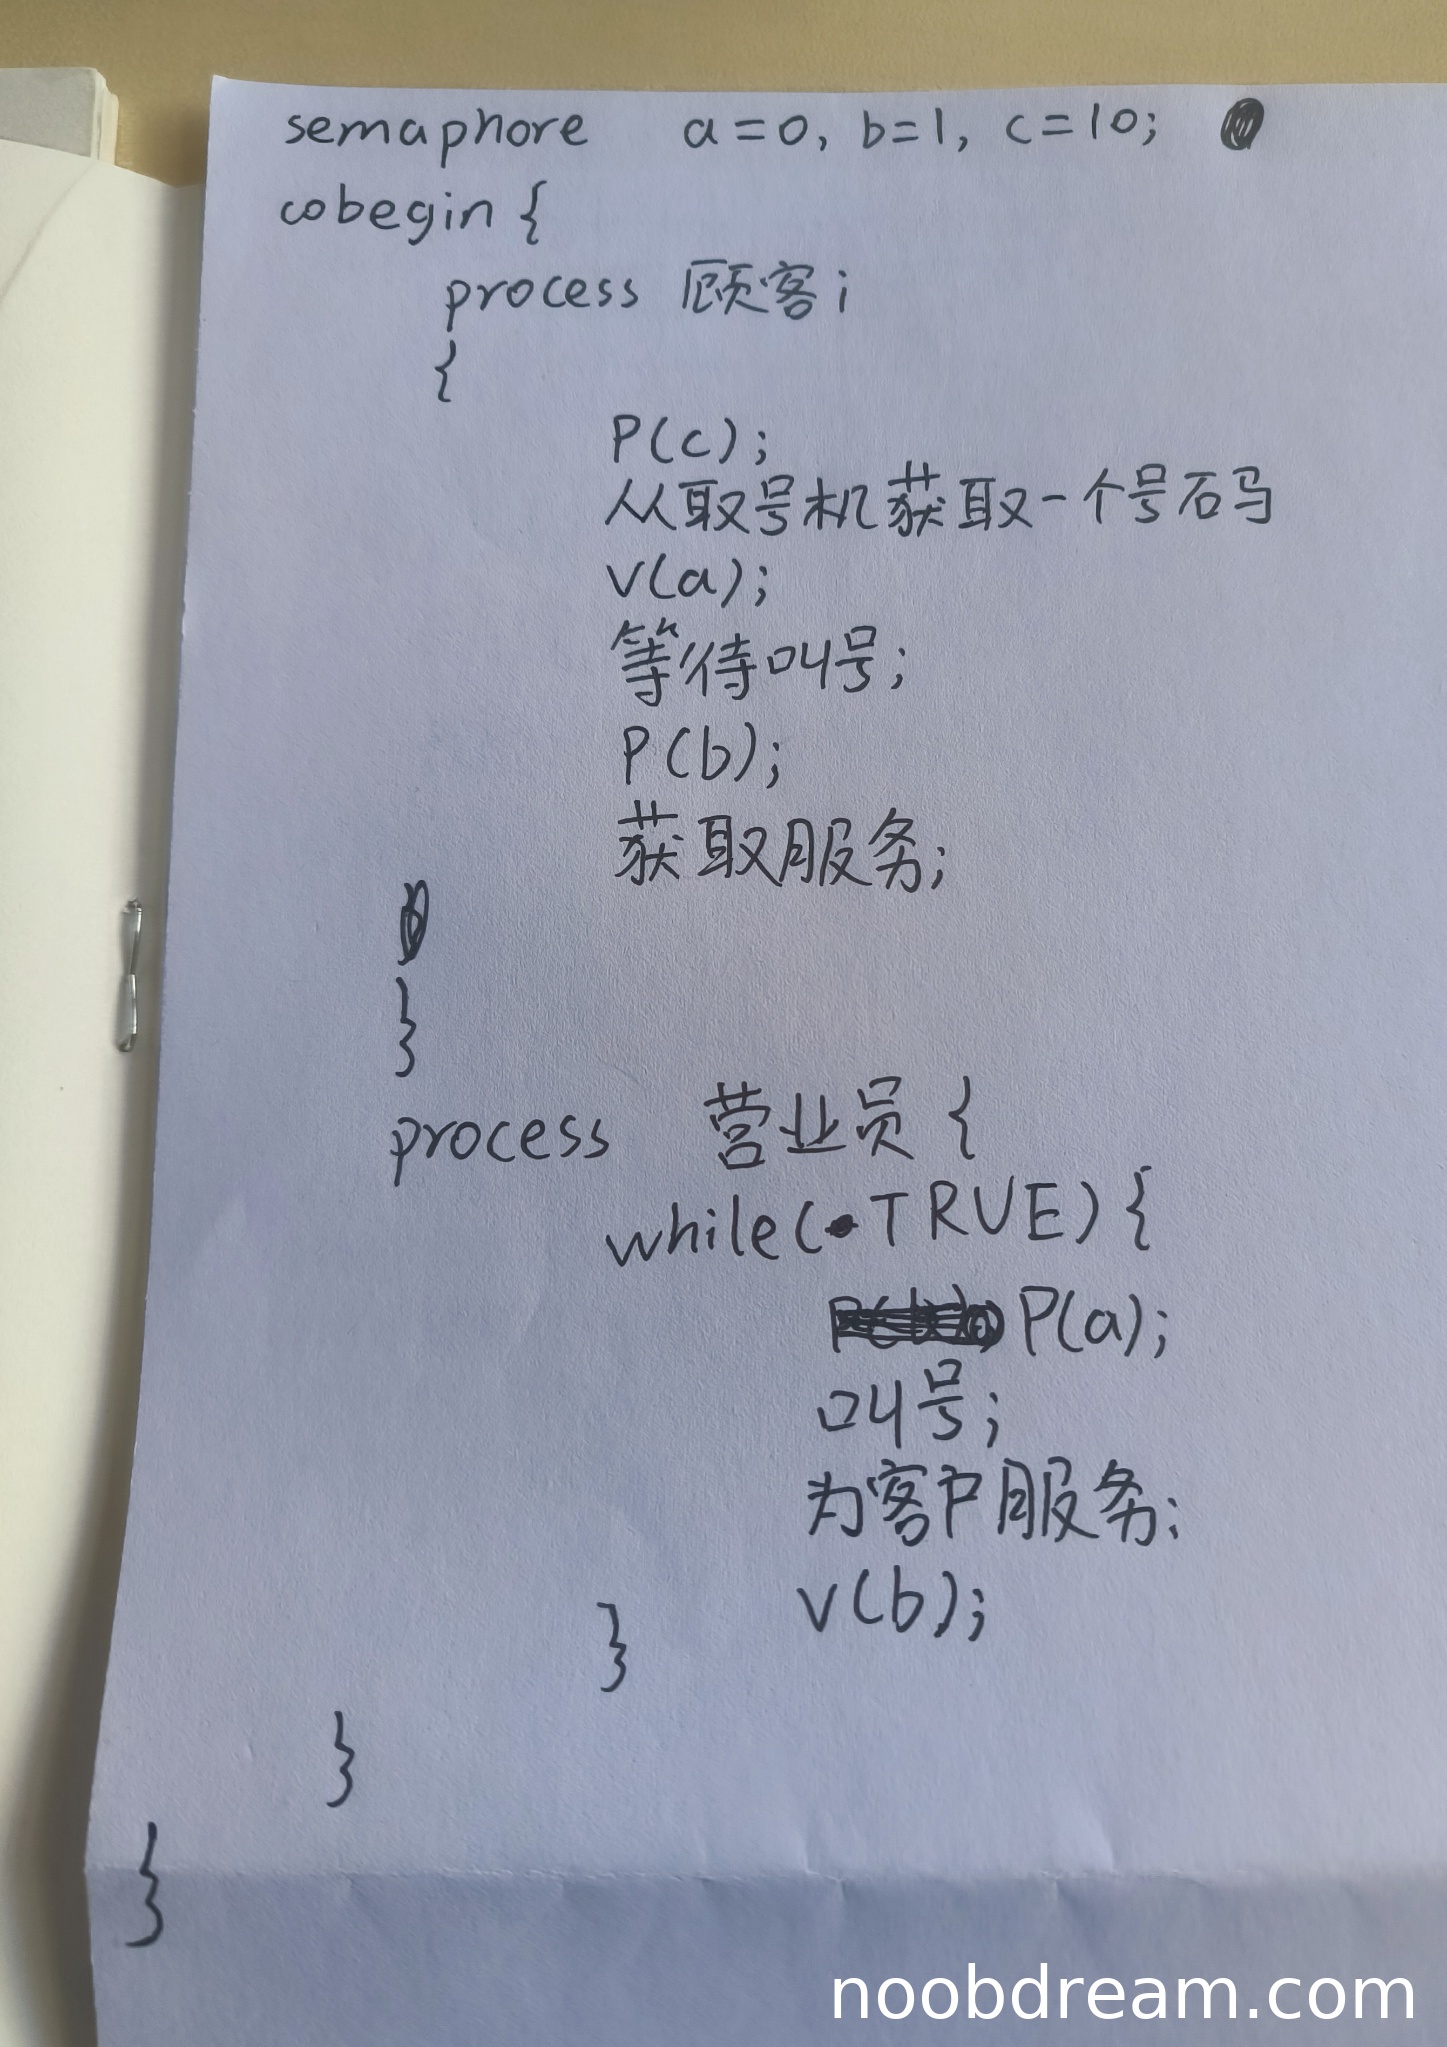 semaphore a=0, b=1, c=10;
cobegin {
process 顾客i
{
P(c);
从取号机获取一个号码
V(a);
等待叫号;
P(b);
获取服务;
}
process 营业员 {
while( TRUE) {
P(a);
叫号;
为客户服务;
V(b);
}
}
}
noobdream.com